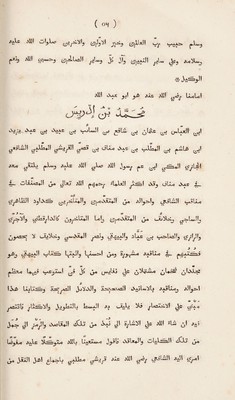 ( ٥٦ )
وسلم حبيب ربّ العالمين وخير الاوّلين والاخرين صلوات الله عليه
وسلامه وعلى ساير النبيين وآل كلّ وساير الصالحين وحسبى الله ونعم
الوكيل
امامنا رضى الله عنه هو ابو عبد الله
محمّد بن ادريس
ابن العبّاس بن عثمان بن شافع بن السائب بن عبيد بن عبد يزيد
ابن هاشم بن المطّلب بن عبد مناف بن قصىّ القرشى المطّلبى الشافعى
الحجازى المكّى ابن عم رسول الله صلى الله عليه وسلم يلتقى معه
فى عبد مناف وقد اكثر العلماء رحمهم الله تعالى من المصنّفات فى
مناقب الشافعى واحواله من المتقدّمين والمتأخرين كداود الظاهرى
والساجى وخلايف من المتقدّمين واما المتاخرون كالدارقطنى والآجرّى
والرازى والصاحب بن عبّاد والبيهقى ونصر المقدسى وخلايف لا يحصون
فكتبهم فى مناقبه مشهورة ومن احسنها واثبتها كتاب البيهقى وهو
مجلّدان ضخمان مشتملان على نفايس من كلّ فنّ استوعب فيهما معظم
احواله ومناقبه بالاسانيد الصحيحة والدلائل الصريحة وكتابنا هذا
مبنىّ على الاختصار فلا يليق به البسط بالتطويل والاكثار فاقتصر
فيه ان شاء الله على الاشارة الى نُبَذ من تلك المقاصد والرمز الى جُمَل
من تلك الكليات والمعاقد فاقول مستعينا بالله متوكّلا عليه مفوّضا
امرى اليه الشافعى رضى الله عنه قرشى مطّلبى باجماع اهل النقل من